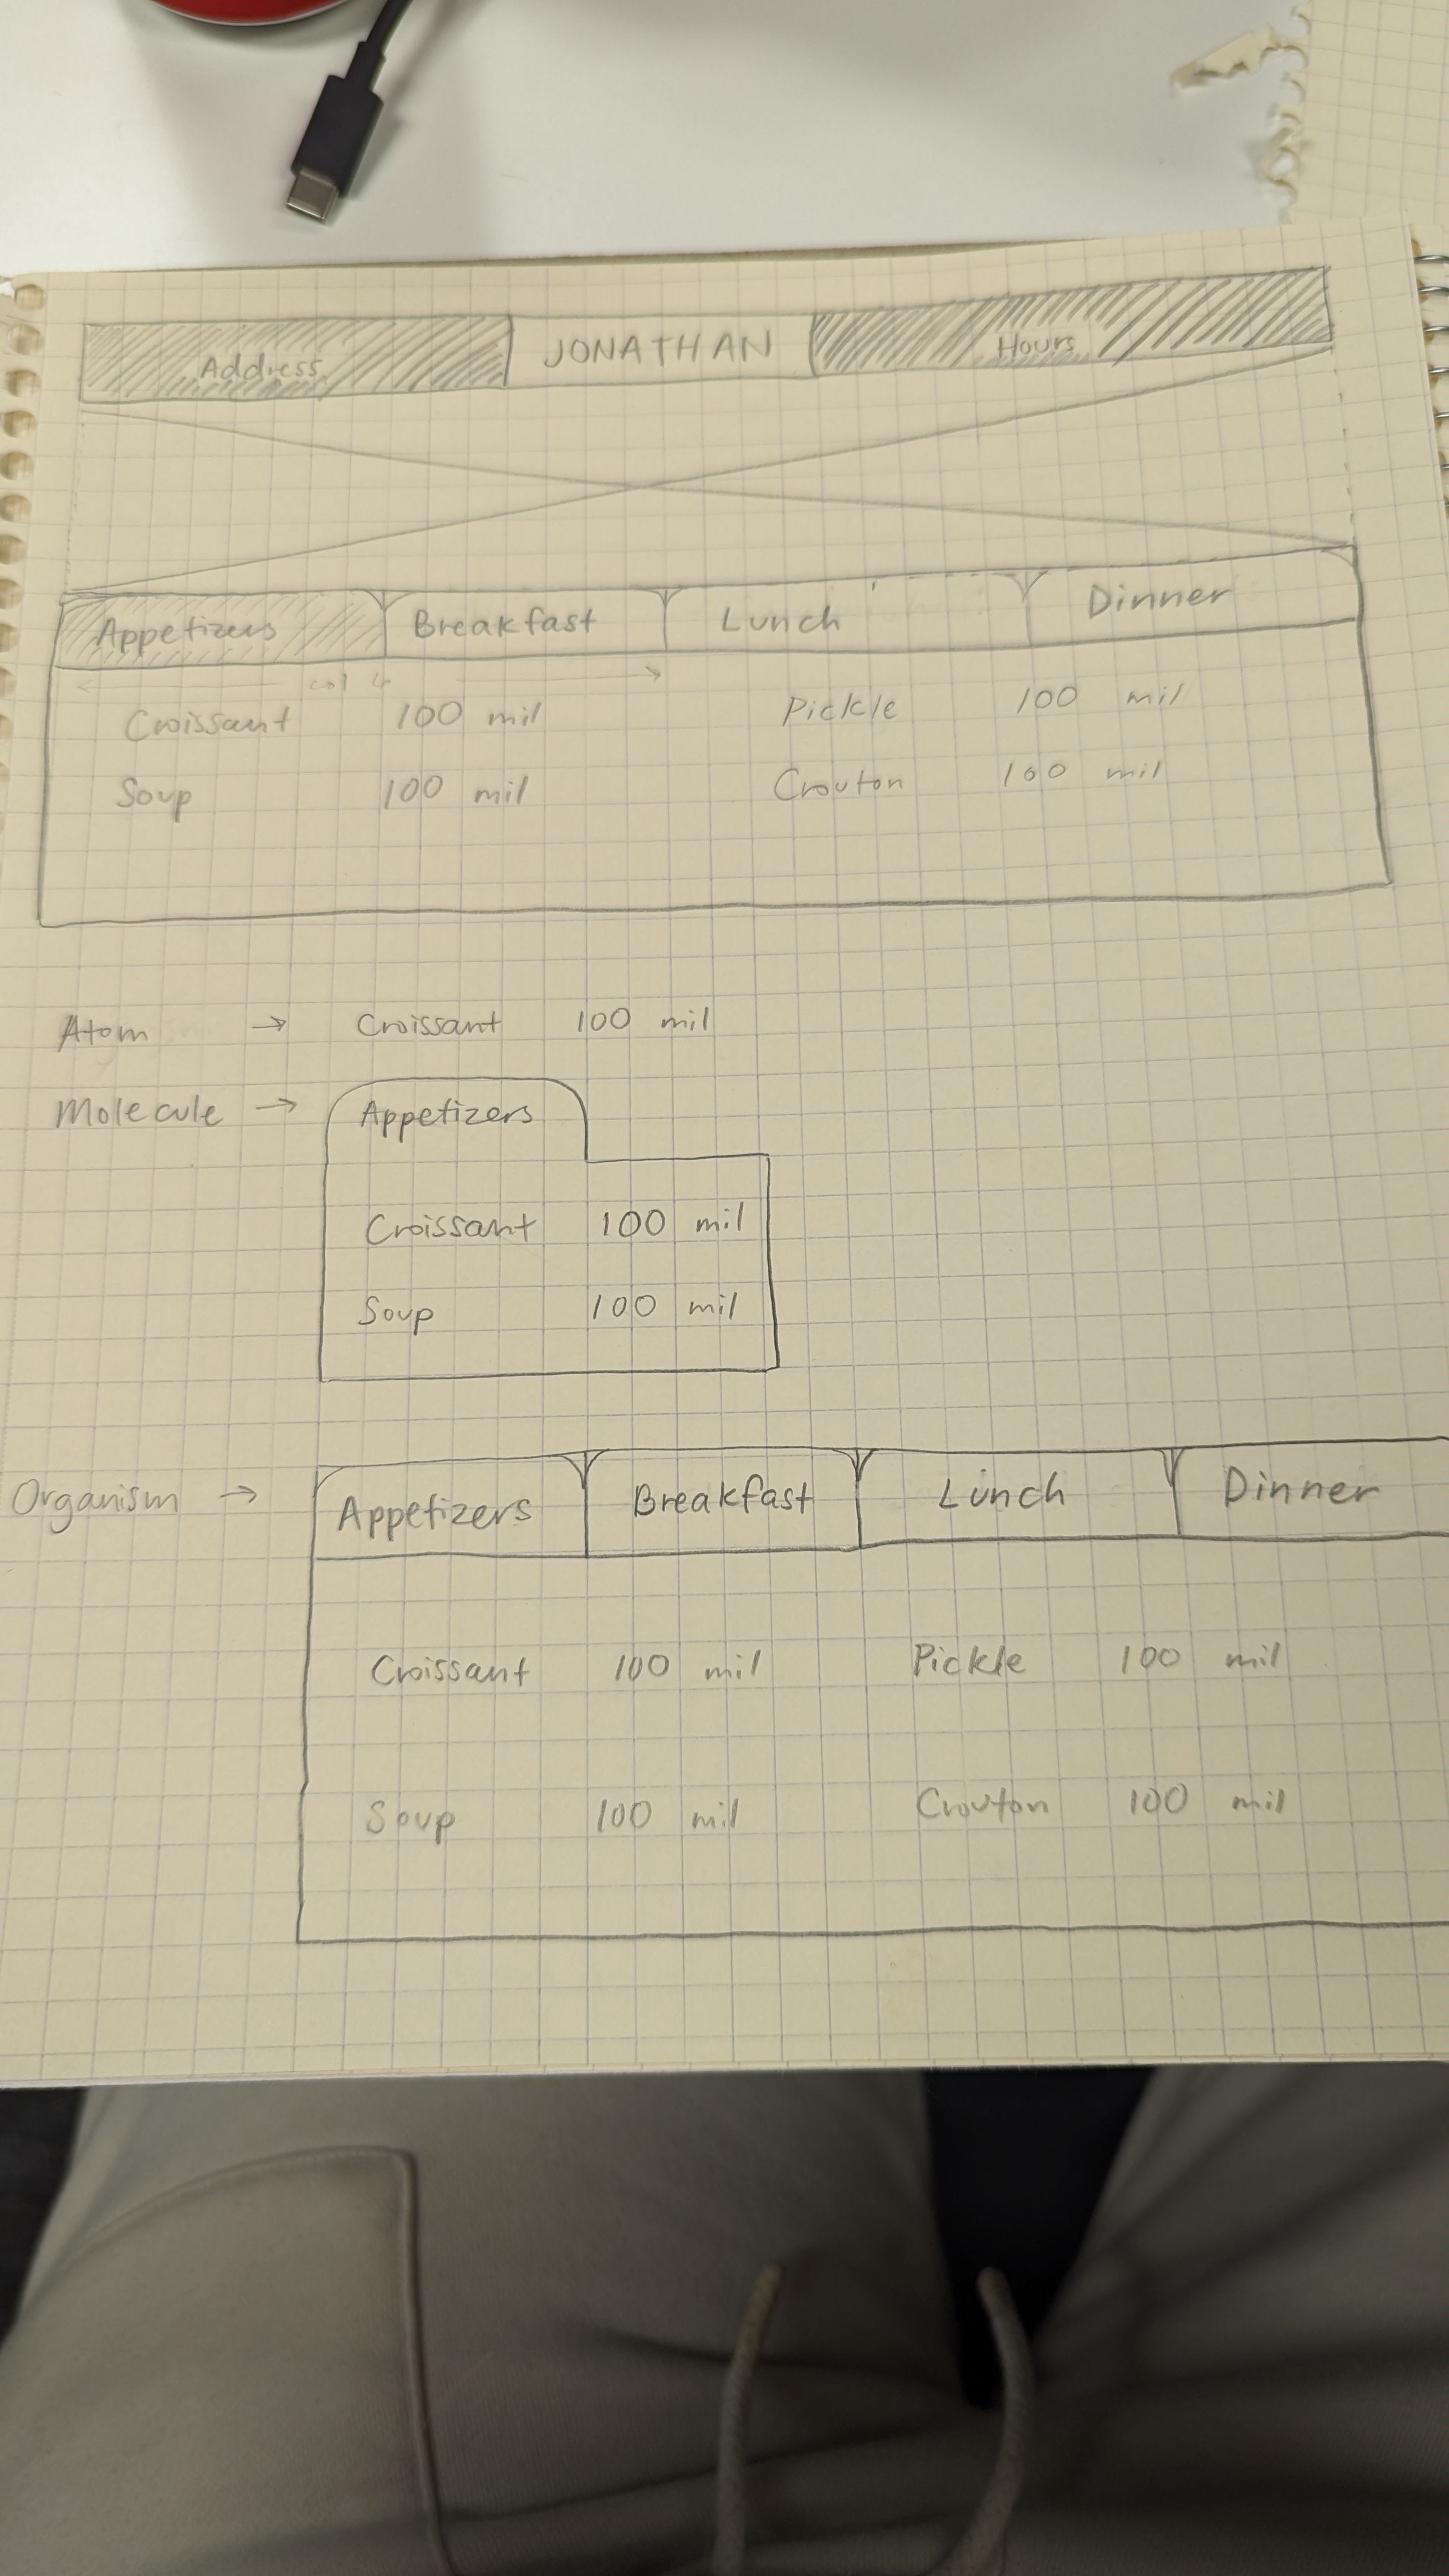 Address JONATHAN Hours
Appetizers Breakfast Lunch Dinner
col
Croissant 100 mil Pickle 100 mil
Soup 100 mil Crouton 100 mil
Atom → Croissant 100 mil
Molecule → Appetizers
Croissant 100 mil
Soup 100 mil
Organism → Appetizers Breakfast Lunch Dinner
Croissant 100 mil Pickle 100 mil
Soup 100 mil Crouton 100 mil